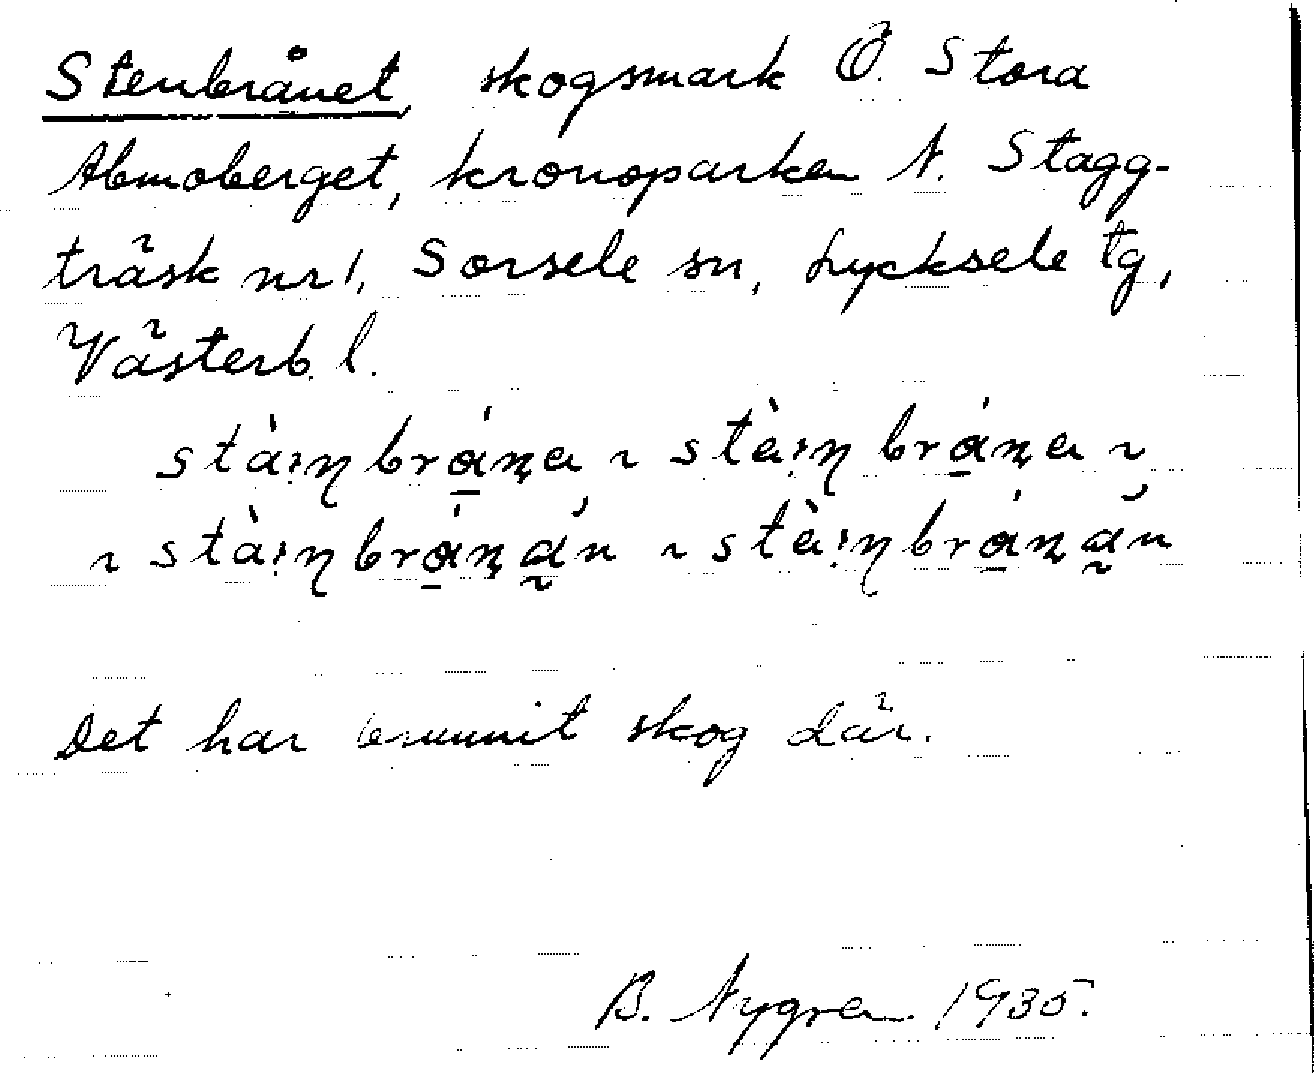 Stenbrånet, skogsmark Ö. Stora
Abmoberget, kronoparken N. Stagg-
träsk nr 1, Sorsele sn, Lycksele tg,
Västerb. l.
stàıŋ brána ~ stàıŋ brána ~
~ stàıŋ bránán ~ stàıŋ bránán
Det har brunnit skog där.
B. Nygren 1935.